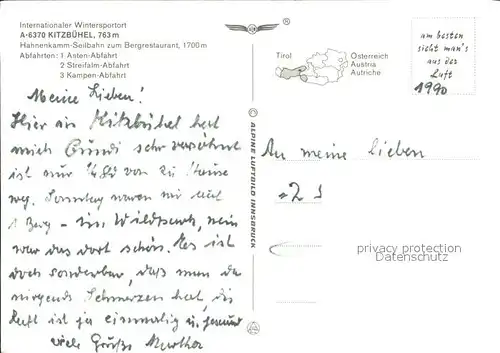 Internationaler Wintersportort
A-6370 KITZBÜHEL, 763 m
Hahnenkamm-Seilbahn zum Bergrestaurant, 1700 m
Abfahrten: 1 Asten-Abfahrt
2 Streifalm-Abfahrt
3 Kampen-Abfahrt
Tirol
Österreich
Austria
Autriche
am besten
sieht man's
aus der
Luft
1990
ALPINE LUFTBILD INNSBRUCK
Meine Lieben!
Hier in Kitzbühel hat
mich Gundi sehr verwöhnt
ist nur von zu Hause
weg. Sonntag waren wir auf
1 Berg - im Wildpark, nein
war das dort schön. Es ist
doch sonderbar, daß man da
nirgends Schmerzen hat, die
Luft ist ja einmalig u. gesund
viele Grüße Martha
An meine lieben
privacy protection
Datenschutz